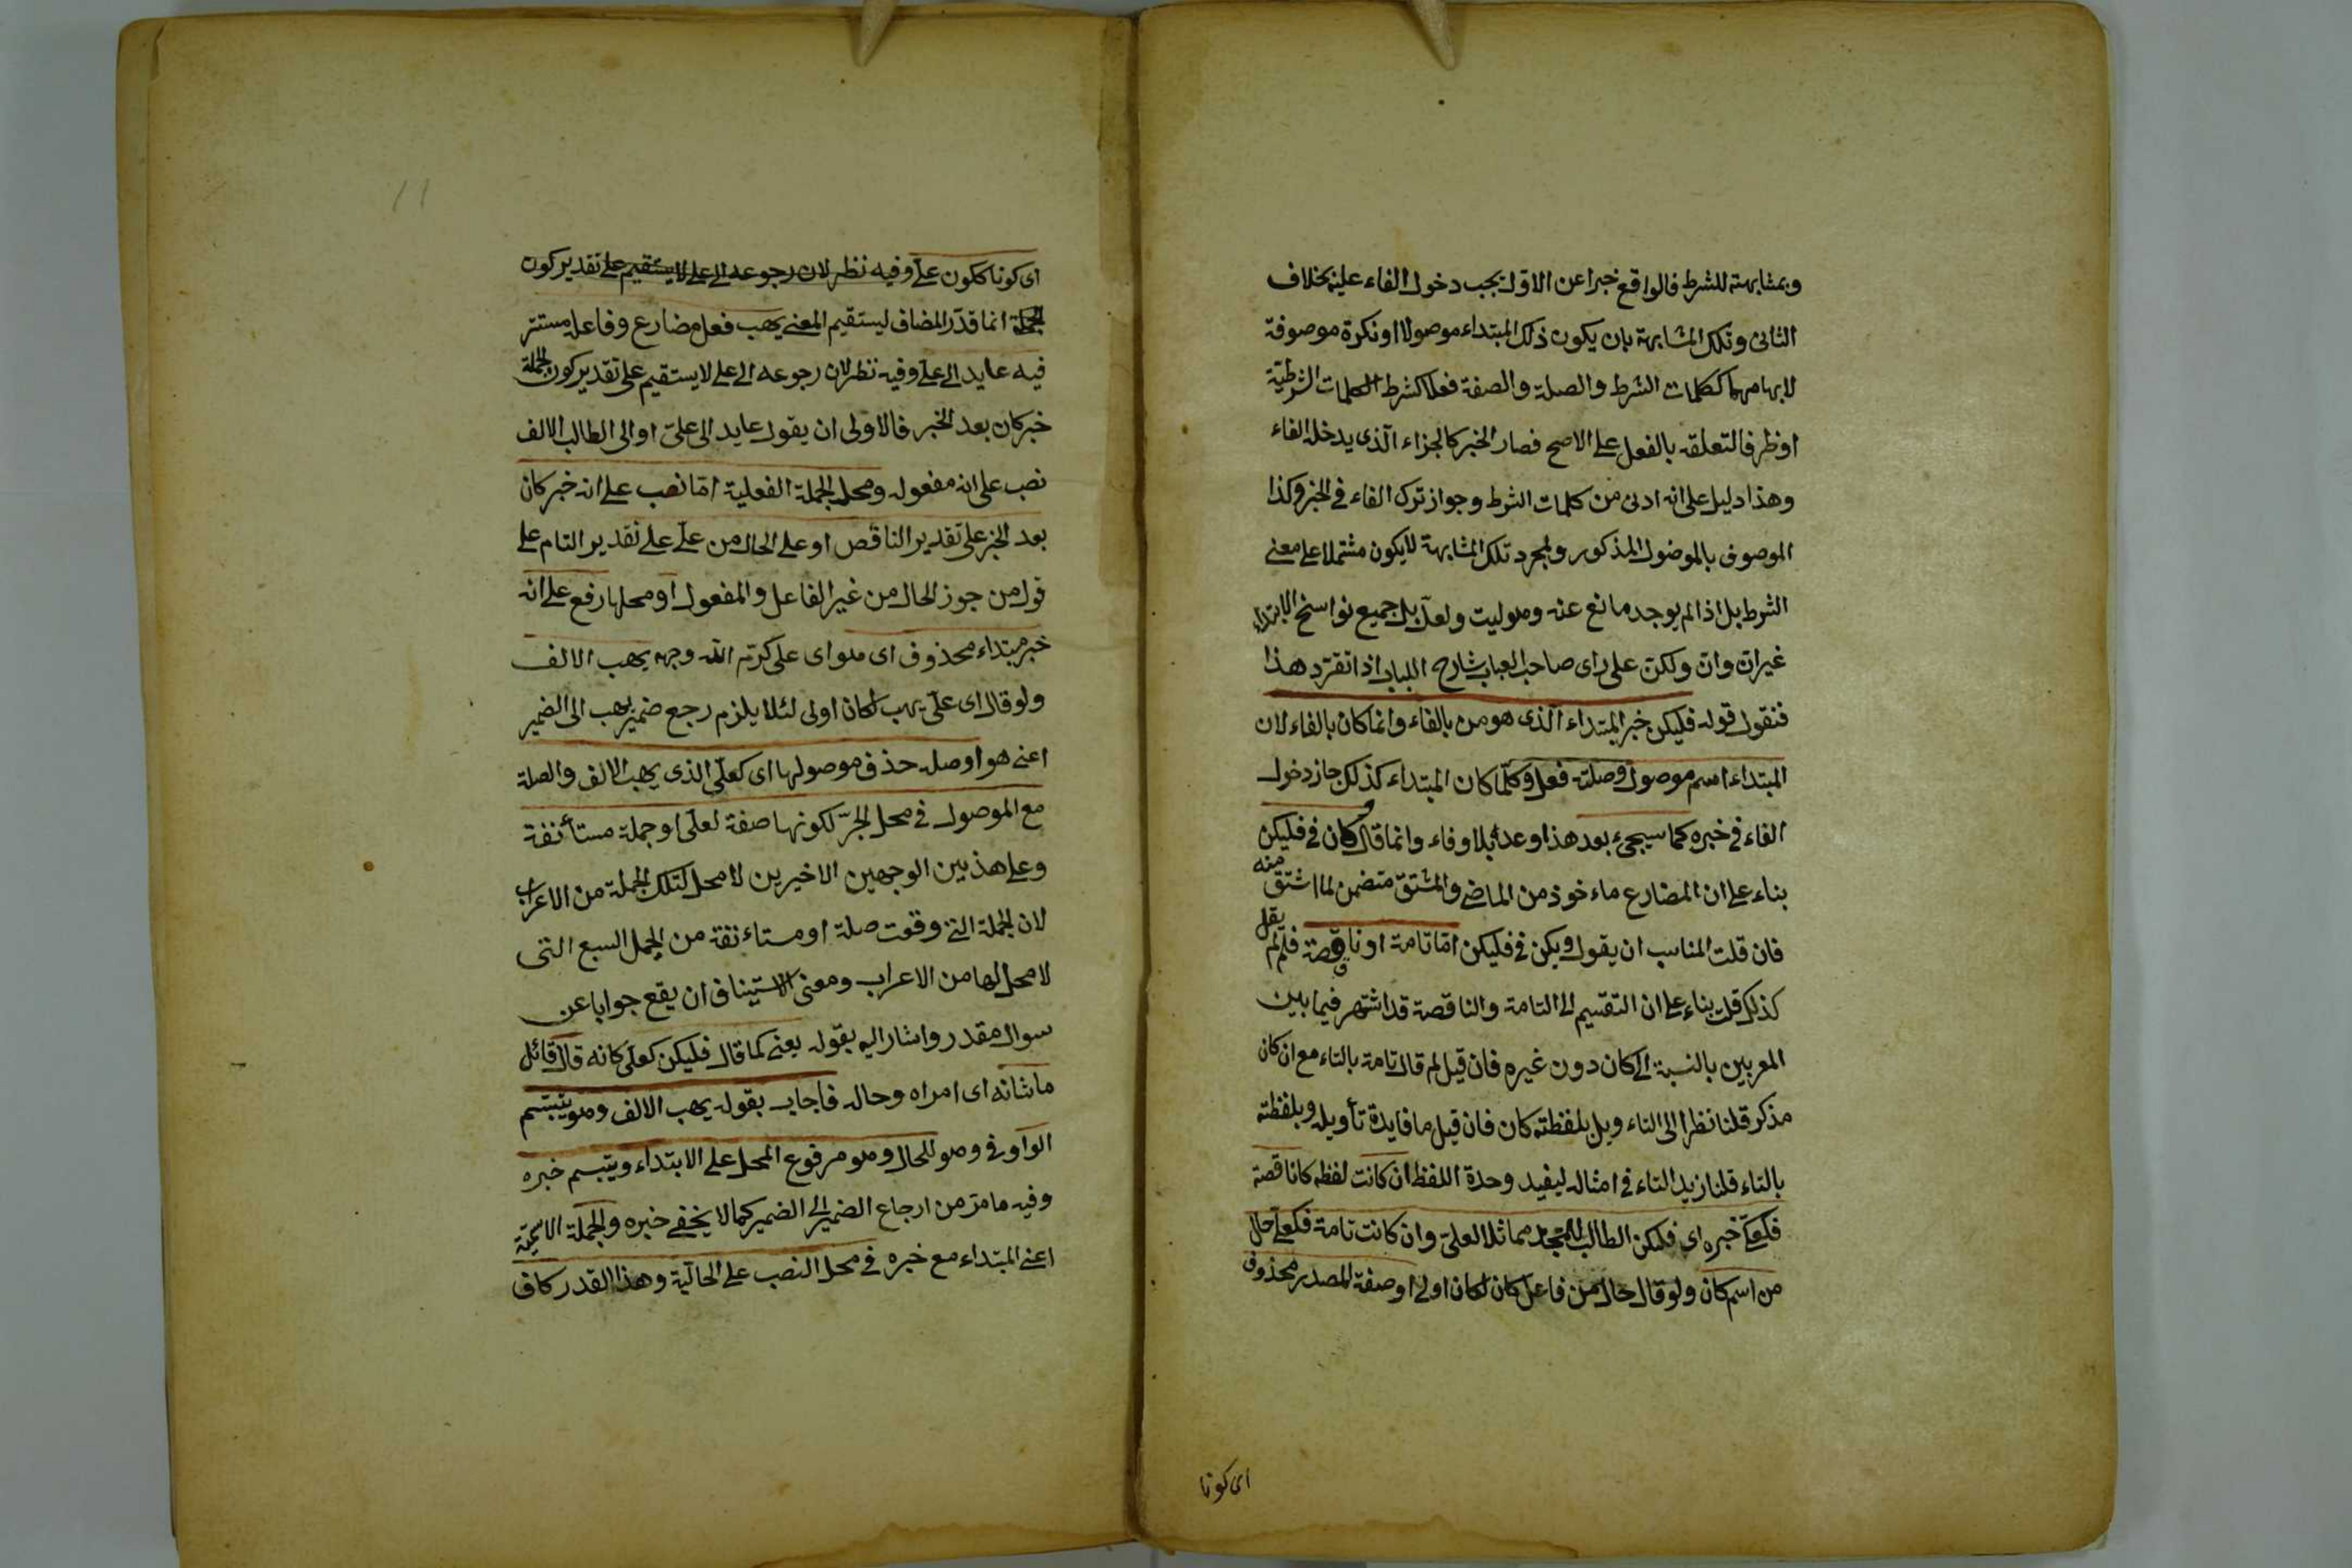 وبمشابهته للشرط فالواقع خبرا عن الاول يجب دخول الفاء عليه بخلاف
الثانى وتلك المشابهة بان يكون ذلك المبتداء موصولا او نكرة موصوفة
لابهامهما ككلمات الشرط والصلة والصفة فعلا كشرط الكلمات الشرطية
او ظرفا لتعلقه بالفعل على الاصح فصار الخبر كالجزاء الذى يدخله الفاء
وهذا دليل على انه ادنى من كلمات الشرط وجواز ترك الفاء فى الخبر وكذا
الموصوف بالموصول المذكور ولمجرد تلك المشابهة لا يكون مشتملا على معنى
الشرط بل اذا لم يوجد مانع عنه وهو ليت ولعل بل جميع نواسخ الابتداء
غير ان وان ولكن على راى صاحب العباب شارح اللباب اذا تقرر هذا
فنقول قوله فليكن خبر المبتداء الذى هو من بالفاء وانما كان بالفاء لان
المبتداء اسم موصول وصلته فعل وكلما كان المبتداء كذلك جاز دخول
الفاء فى خبره كما سيجئ بعد هذا وعدا بلا وفاء وانما قال وكان فى فليكن
بناء على ان المضارع ماءخوذ من الماضى والمشتق متضمن لما اشتق منه
فان قلت المناسب ان يقول ويكن فى فليكن اما تامة او ناقصة فلم لم يقل
كذلك قلت بناء على ان التقسيم الى التامة والناقصة قد اشتهر فيما بين
المعربين بالنسبة الى كان دون غيره فان قيل لم قال تامة بالتاء مع ان كان
مذكر قلنا نظرا الى التاء ويل بلفظته كان فان قيل ما فايدة تأويله وبلفظته
بالتاء قلنا زيد التاء فى امثاله ليفيد وحدة اللفظ ان كانت لفظه كانا قصة
فكعلى خبره اى فليكن الطالب للمجد مماثلا لعلى وان كانت تامة فكعلى حال
من اسم كان ولو قال حال من فاعل كان لكان اولى او صفة المصدر محذوف
اى كونا
اى كونا ككون على وفيه نظر لان رجوعه الى على لا يستقيم على تقدير كون
الجملة انما قدر المضاف ليستقيم المعنى يهب فعل مضارع وفاعله مستتر
فيه عايد الى على وفيه نظر لان رجوعه الى على لا يستقيم على تقدير كون الجملة
خبر كان بعد الخبر فالاولى ان يقول عايد الى على او الى الطالب الالف
نصب على انه مفعوله ومحل الجملة الفعلية اما نصب على انه خبر كان
بعد الخبر على تقدير الناقص او على الحال من على على تقدير التام على
قول من جوز الحال من غير الفاعل والمفعول او محلها رفع على انه
خبر مبتداء محذوف اى هو اى على كرم الله وجهه يهب الالف
ولو قال اى على يهب لكان اولى لئلا يلزم رجع ضمير يهب الى الضمير
اعنى هو او صلة حذف موصولها اى كعلى الذى يهب الالف والصلة
مع الموصول فى محل الجر لكونها صفة لعلى او جملة مستأنفة
وعلى هذين الوجهين الاخيرين لا محل لتلك الجملة من الاعراب
لان الجملة التى وقعت صلة او مستاءنفة من الجمل السبع التى
لا محل لها من الاعراب ومعنى الاستيناف ان يقع جوابا عن
سوال مقدر واشار اليه بقوله يعنى كما قال فليكن كعلى كانه قال قائل
ما شانه اى امراه وحاله فاجاب بقوله يهب الالف وهو يتبسم
الواو فى وهو للحال وهو مرفوع المحل على الابتداء ويتبسم خبره
وفيه ما مر من ارجاع الضمير الى الضمير كما لا يخفى خبره والجملة الاسمية
اعنى المبتداء مع خبره فى محل النصب على الحالية وهذا القدر كاف